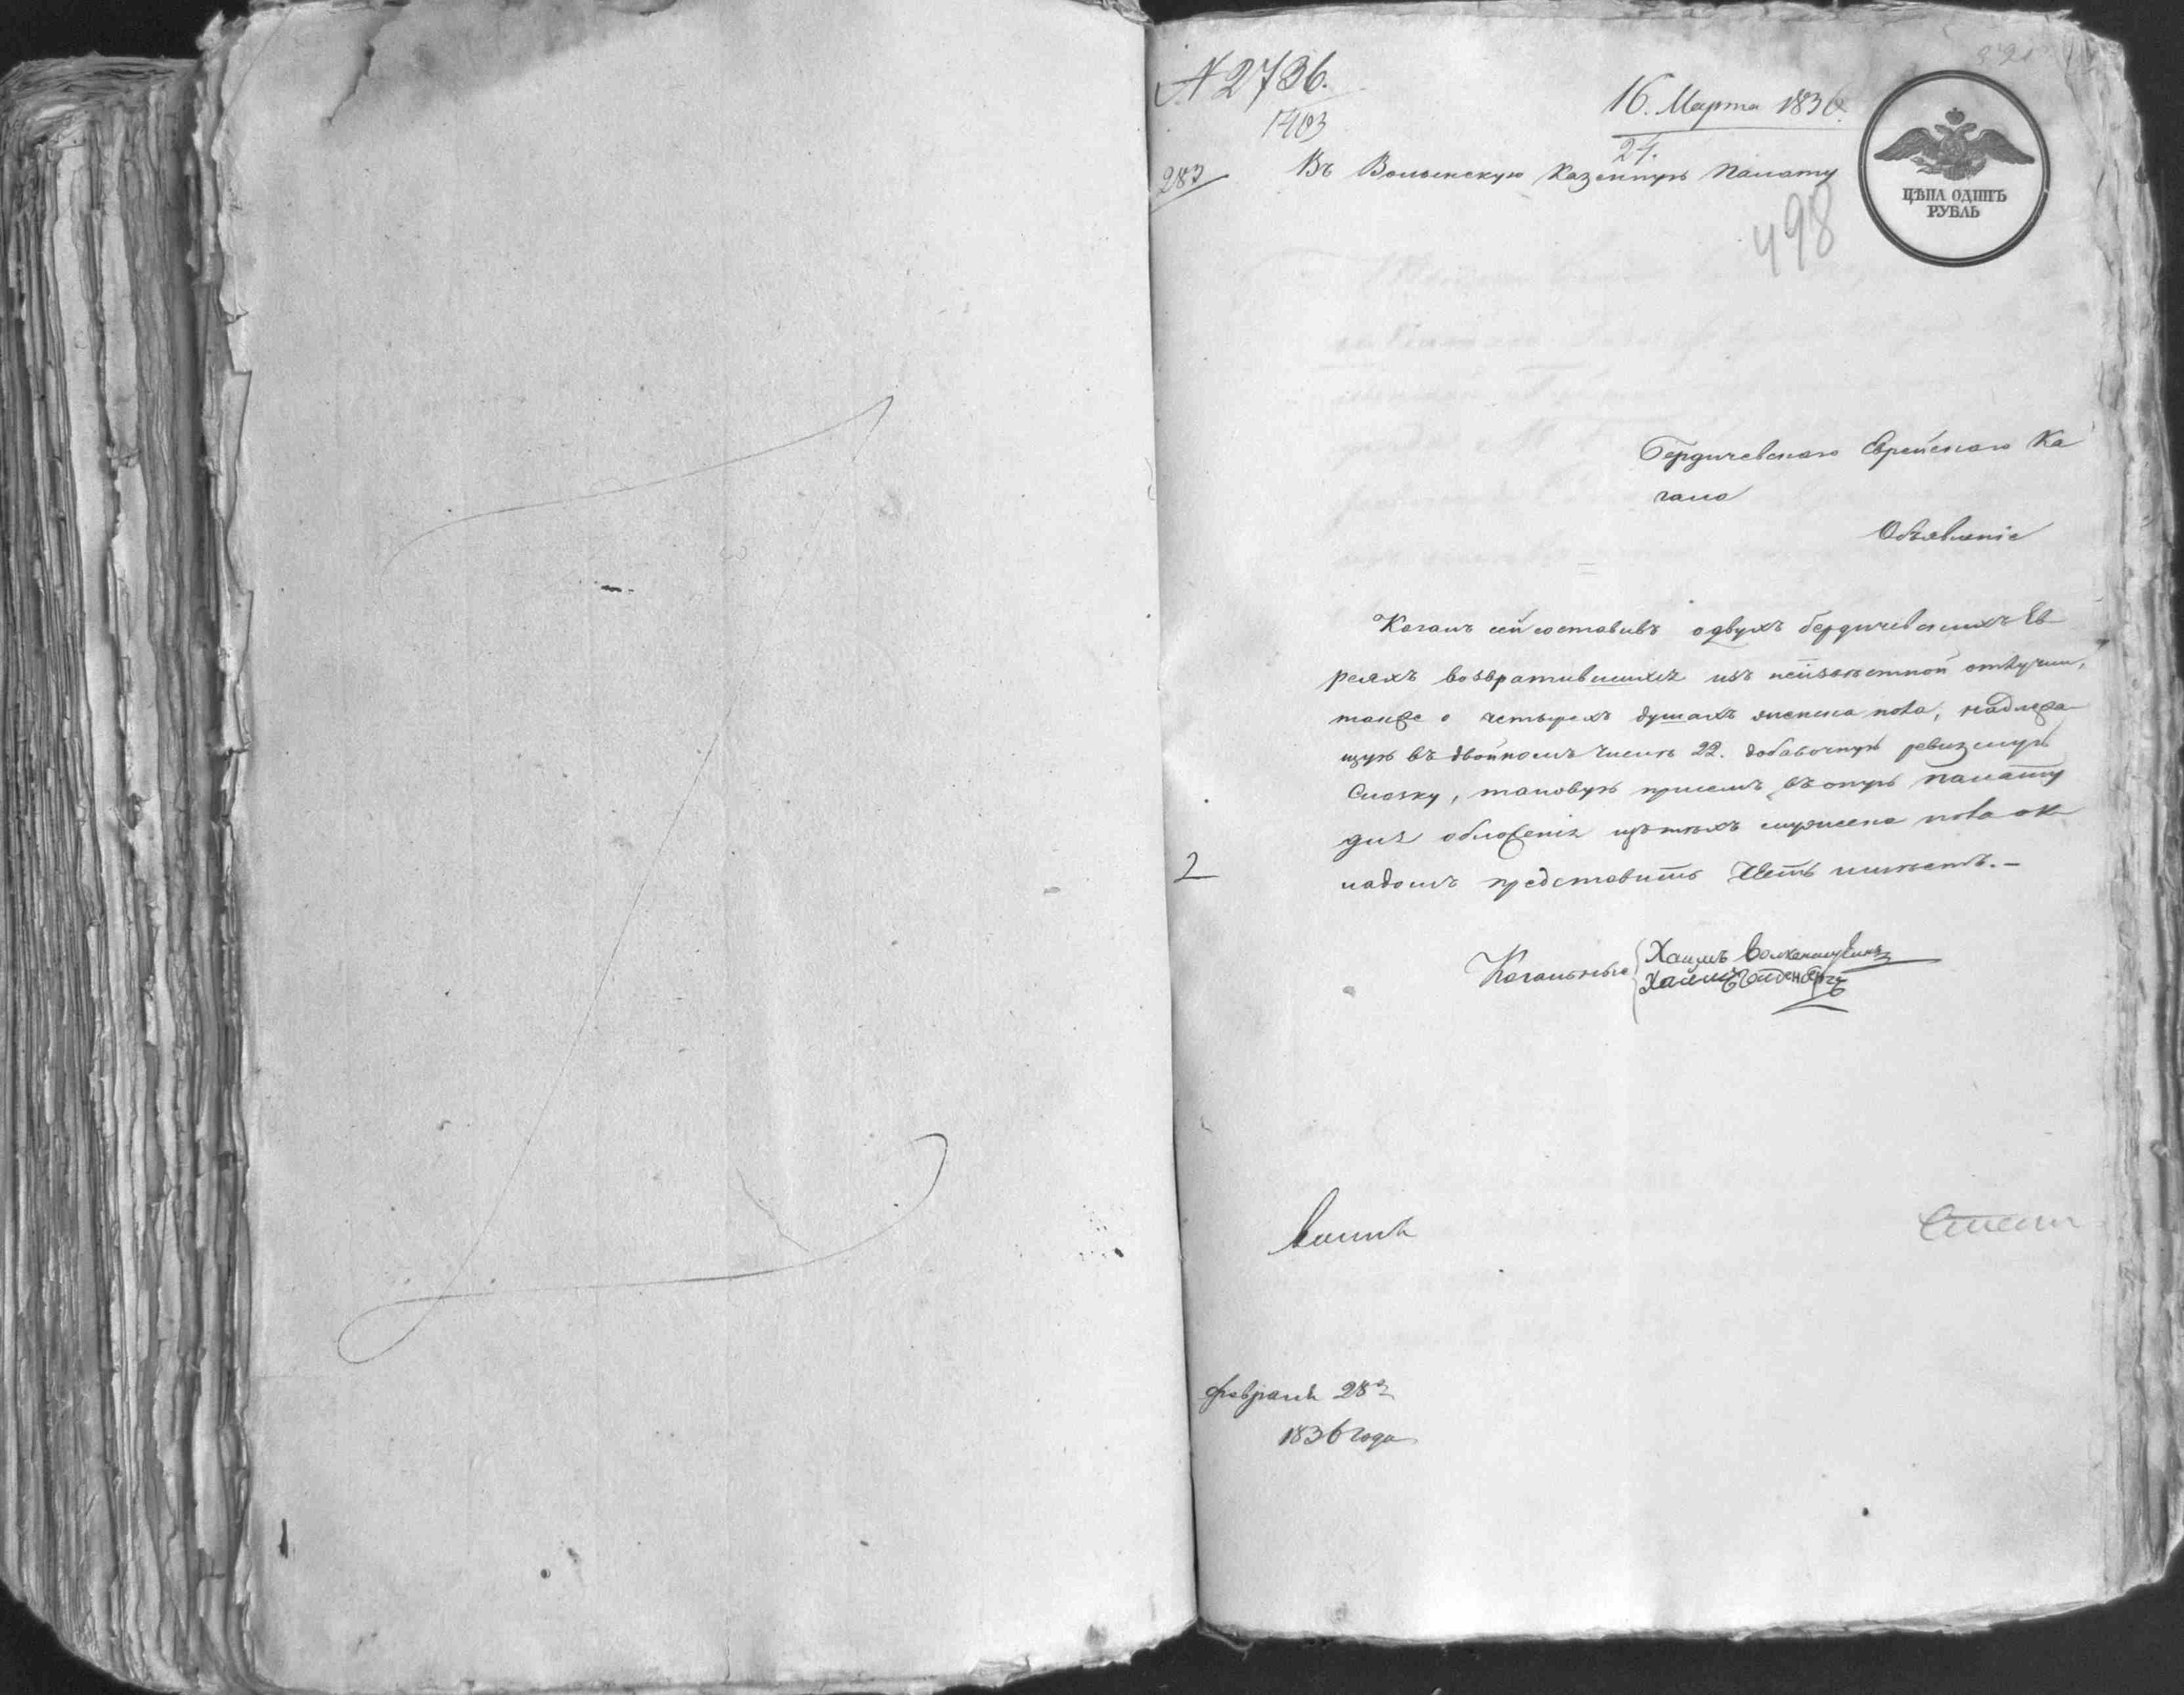 № 2736.
1403
283
16. Марта 1836.
24.
Въ Волынскую Казенную Палату
ЦѢНА ОДИНЪ
РУБЛЬ
498
Бердичевскаго Еврейскаго Ка
гала
Объявленіе
Кагалъ сей составивъ о двухъ бердичевскихъ Ев
реяхъ возвратившихся изъ неизвѣстной отлучки,
также о четырехъ душахъ женска пола, надлежа
щую въ двойномъ числѣ 22. добавочную ревизскую
Сказку, таковую при семъ въ оную палату
для обложенія мужеска пола ок
ладомъ представить честь имѣетъ.-
2
Кагальные
Хаимъ
Хаимъ
февраля 28
1836 года